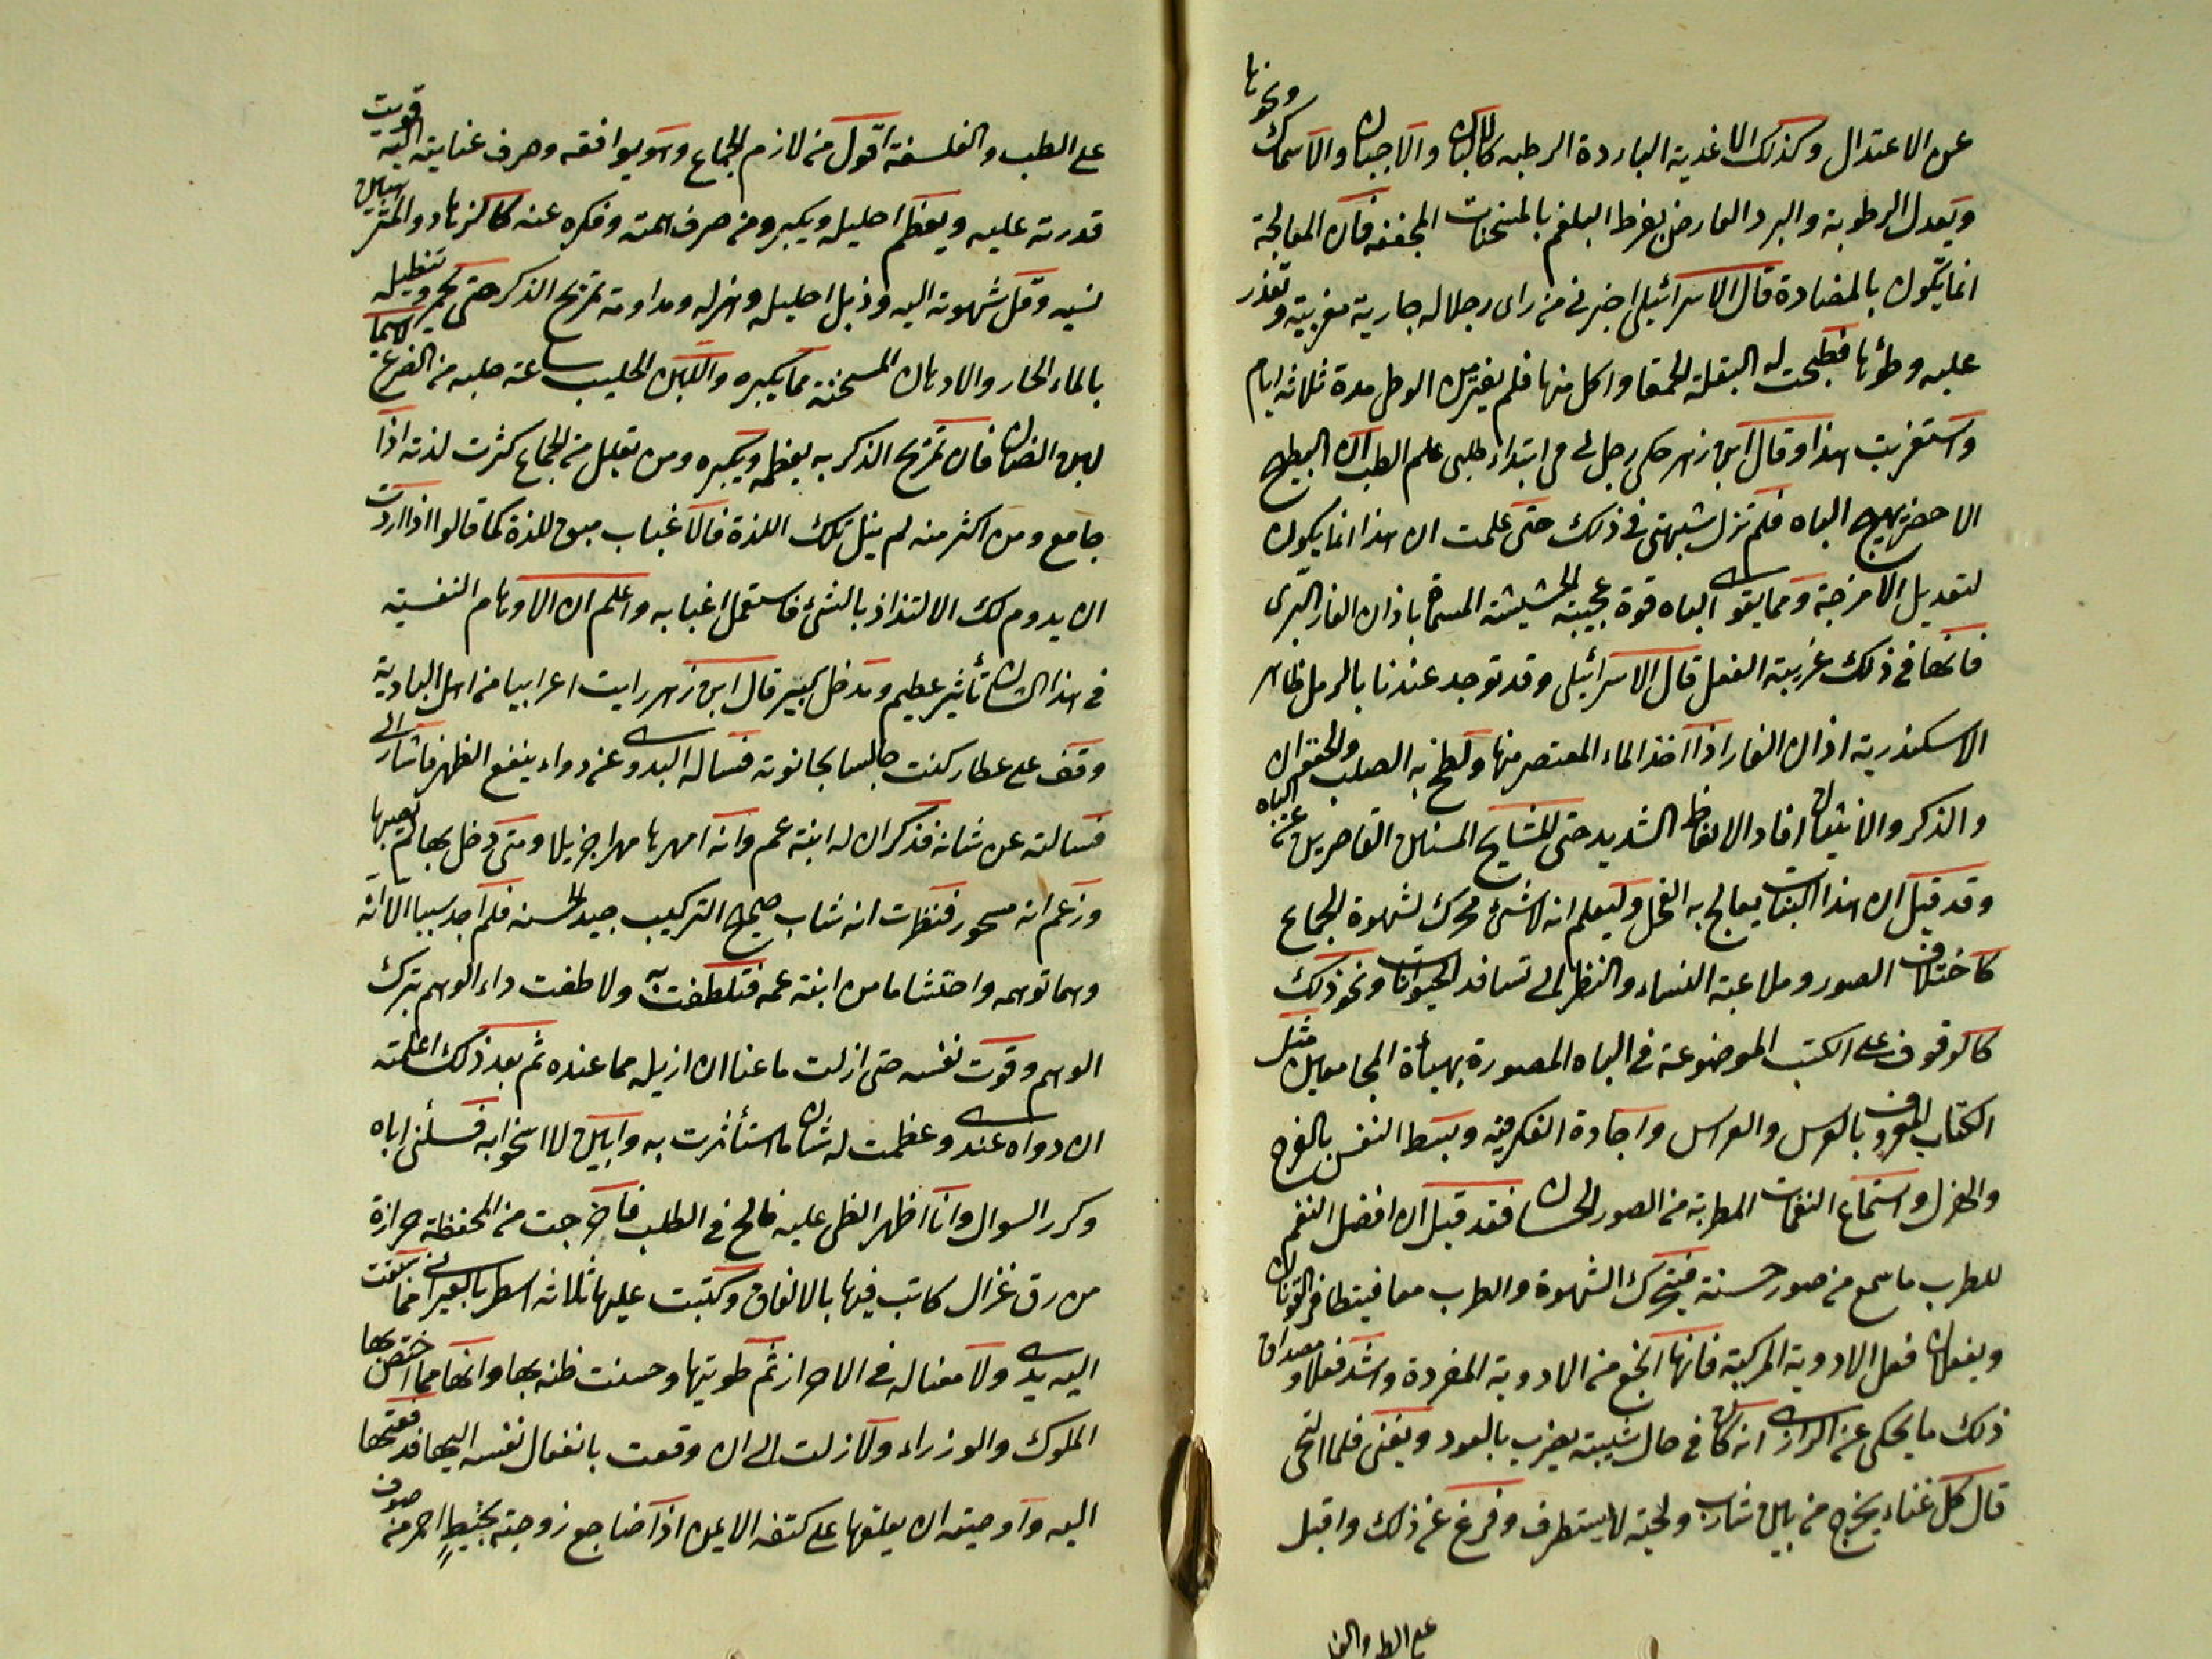 عن الاعتدال وكذلك الاغذية الباردة الرطبه كالالبان والاجبان والاسماك ونحوها
ويعدل الرطوبة والبرد العارض بفرط البلغم بالمسخنات المجففه فان المعالجة
انما يكون بالمضادة قال الاسرائيلى اخبرنى من راى رجلا له جارية مغربية وتعذر
عليه وطؤها فطبخت له البقلة الحمقا واكل منها فلم يفتر من الوطى مدة ثلاثه ايام
واستغربت هذا وقال ابن زهر حكى رجل لى فى ابتداء طلبى علم الطب ان البطيخ
الاخضر يهيج الباه فلم تزل شبهتى فى ذلك حتى علمت ان هذا انما يكون
لتعديل الامزجة ومما يقوى الباه قوة عجيبة الحشيشة المسماة باذان الفار البرى
فانها فى ذلك غريبة الفعل قال الاسرائيلى وقد توجد عندنا بالرمل ظاهر
الاسكندرية اذان الفار اذا اخذ الماء المعتصر منها ولطخ به الصلب والحقو ان
والذكر والانثيان افاد الانعاظ الشديد حتى للمشايخ المسنين القاصرين عن الباه
وقد قيل ان هذا النبات يعالج به الفحل وليعلم انه لا شئ محرك لشهوة الجماع
كاختلاف الصور وملاعبة النساء والنظر الى تسافد الحيوانات ونحو ذلك
كالوقوف على الكتب الموضوعة فى الباه المصورة بهيأة المجامعين مثل
الكتاب المعروف بالعرس والعرايس واجادة الفكر فيه وبسط النفس بالفرح
والهزل واستماع النغمات المطربة من الصور الحسان فقد قيل ان افضل النغم
للطرب ما سمع من صور حسنة فيتحرك الشهوة والطرب معا فيتظافر القوتان
ويفعلان فعل الادوية المركبة فانها انجع من الادوية المفردة واشد فعلا ومصداق
ذلك ما يحكى عن الرازى انه كان فى حال شبيبته يضرب بالعود ويغنى فلما التحى
قال كل غناء يخرج من بين شارب ولحية لا يستطرف وفرغ عن ذلك واقبل
على الطب والفا
على الطب والفلسفة اقول من لازم الجماع وهو يوافقه وصرف عنايته اليه قويت
قدرته عليه ويعظم احليله ويكبر ومن صرف همته وفكره عنه كالزهاد والمترهبين
نسيه وقل شهوته اليه وذبل احليله وهزله ومداومة تمزيخ الذكر حتى يحمر وتنطيله
بالماء الحار والادهان المسخنة مما يكبره واللبن الحليب ساعة حلبه من الضرع لاسيما
لبن الضان فان تمزيخ الذكر به يعظمه ويكبره ومن تقلل من الجماع كثرت لذته اذا
جامع ومن اكثر منه لم ينل تلك اللذة فالاغباب مبق للذة كما قالوا اذا اردت
ان يدوم لك الالتذاذ بالشئ فاستعمل اغبابه واعلم ان الاوهام النفسية
فى هذا الشان تأثير عظيم ومدخل كبير قال ابن زهر رايت اعرابيا من اهل البادية
وقف على عطار كنت جالسا بحانوته فساله البدوى عن دواء ينفع الظهر فاشار الى
فسالته عن شانه فذكر ان له ابنة عم وانه امهرها مهرا جزيلا ومتى دخل بها لم يصبها
وزعم انه مسحور فنظرت انه شاب صحيح التركيب جيد الحسنه فلم اجد سببا الا انه
وهما توهمه واحتشاما من ابنة عمه فتلطفت به ولاطفت داء الوهم بترك
الوهم وقوت نفسه حتى ازلت ما عنا ان ازيله مما عنده ثم بعد ذلك اعلمته
ان دواه عندى وعظمت له شان ما استأثرت به وابين لا اسخوا به فسلنى اياه
وكرر السوال وانا اظهر الظن عليه فالح فى الطلب فاخرجت من المحفظة حرازة
من رق غزال كاتب فيها بالاتفاق وكتبت عليها ثلاثة اسطر بالعبرانى مما سبقت
اليه يدى ولا معنا له فى الاحراز ثم طويتها وحسنت ظنه بها وانها مما اختص بها
الملوك والوزراء ولا زلت الى ان وقعت بانفعال نفسه اليها فدفعتها
اليه واوصيته ان يعلقها على كتفه الايمن اذا ضاجع زوجته بخيط احمر من صوف